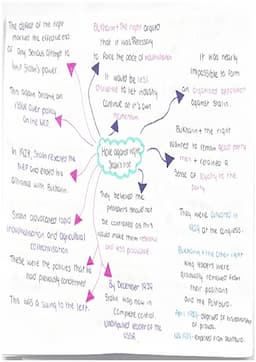 The defeat of the right
marked the effective end
of any serious attempt to
limit Stalin's power.
This again became an
issue over policy
on the NEP.
In 1928, Stalin reversed the
NEP and ended his
alliance with Bukharin.
Stalin advocated rapid
industrialisation and agricultural
collectivisation
These were the policies that he
had previously condemned
This was a swing to the left.
Bukharin + the right argued
that it was necessary
to force the pace of
It would be less
disruptive to let industry
continue at it's own
momentum
How against right
Stalin's rise
They believed the
peasants should not
be                as this
would make them resentful
and less productive
By December 1929
Stalin was now in
complete control.
Undisputed leader of the
USSR
It was nearly
impossible to form
an organised opposition
against Stalin.
Bukharin + the right
wanted to remain
+ retained a
sense of loyalty to the
party
They were defeated in
at the congress.
Bukharin + the other right
wing leaders were
gradually removed from
their positions
and the Politburo.
April 1929-
Nov 1929- expelled from Politburo.